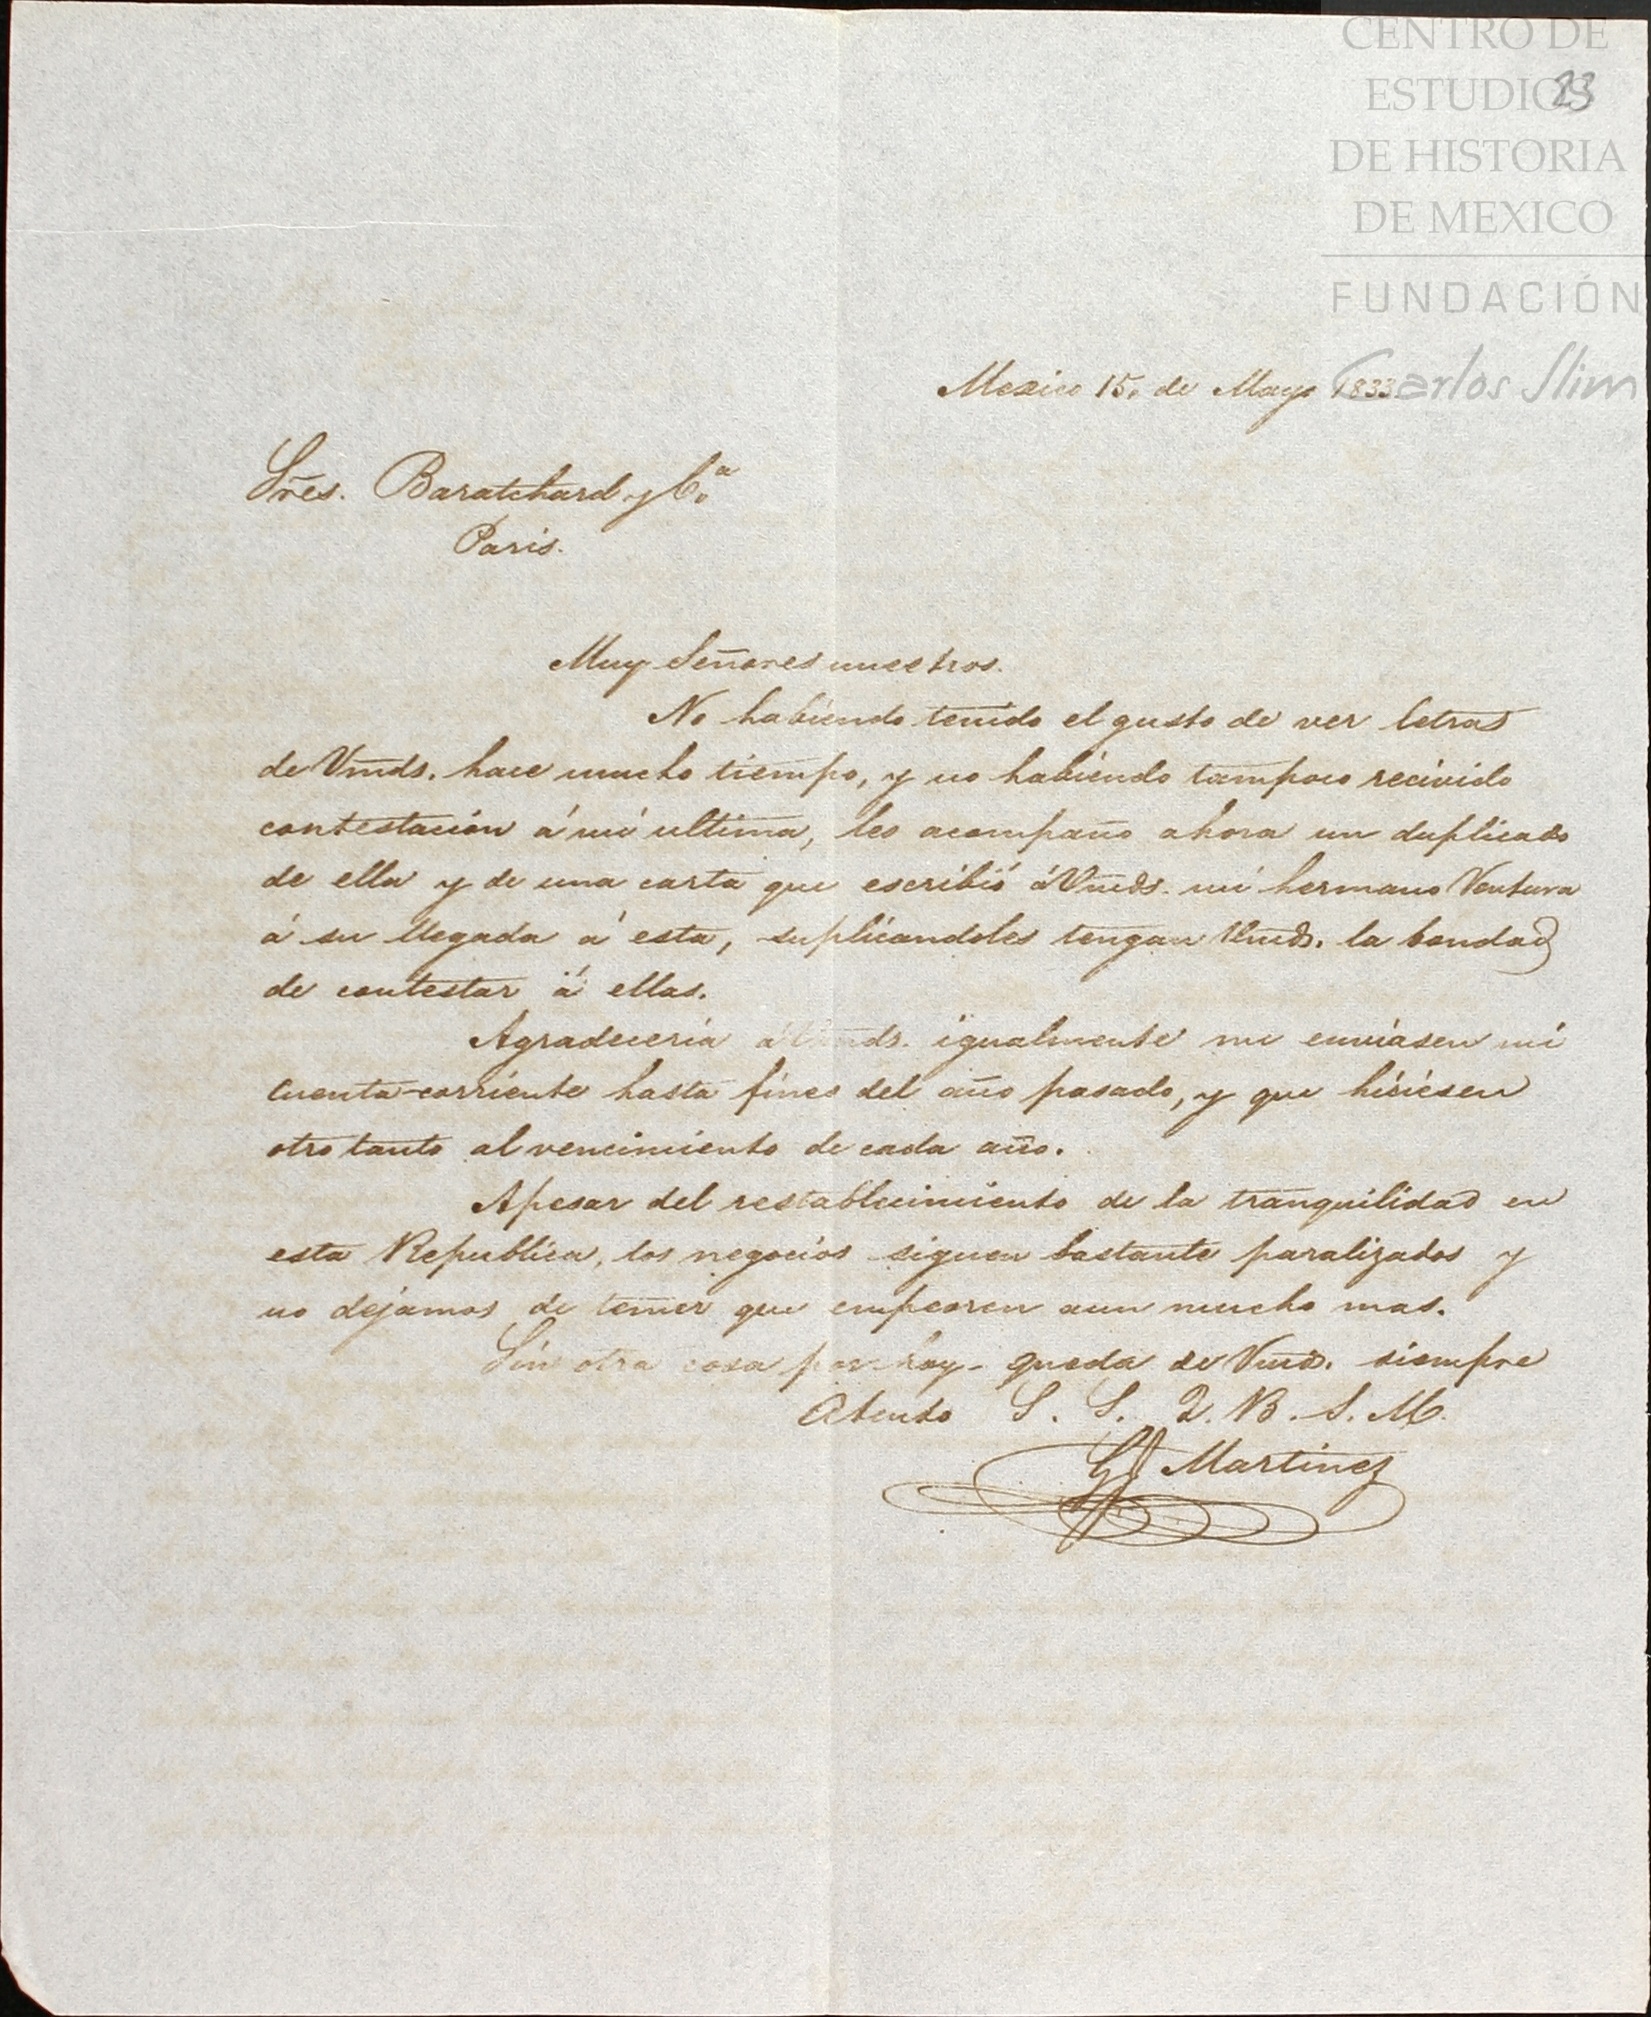 CENTRO DE
ESTUDIOS
23
DE HISTORIA
DE MEXICO
FUNDACIÓN
Carlos Slim
Mexico 15. de Mayo 1833
Sres. Baratchard y C.ª
Paris.
Muy Señores nuestros.
No habiendo tenido el gusto de ver letras
de Vmds. hace mucho tiempo, y no habiendo tampoco recivido
contestacion á mi ultima, les acompaño ahora un duplicado
de ella y de una carta que escribió á Vmds. mi hermano Ventura
á su llegada á esta, suplicandoles tengan Vmds. la bondad
de contestar á ellas.
Agradeceria á Vmds. igualmente me enviasen mi
cuenta-corriente hasta fines del año pasado, y que hiciesen
otro tanto al vencimiento de cada año.
Apesar del restablecimiento de la tranquilidad en
esta Republica, los negocios siguen bastante paralizados y
no dejamos de temer que empeoren aun mucho mas.
Sin otra cosa por hoy queda de Vmds. siempre
Atento S. S. Q. B. S. M.
Martinez